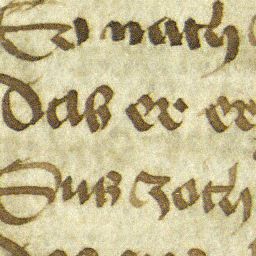 Er nach
das er er
Sus zoch